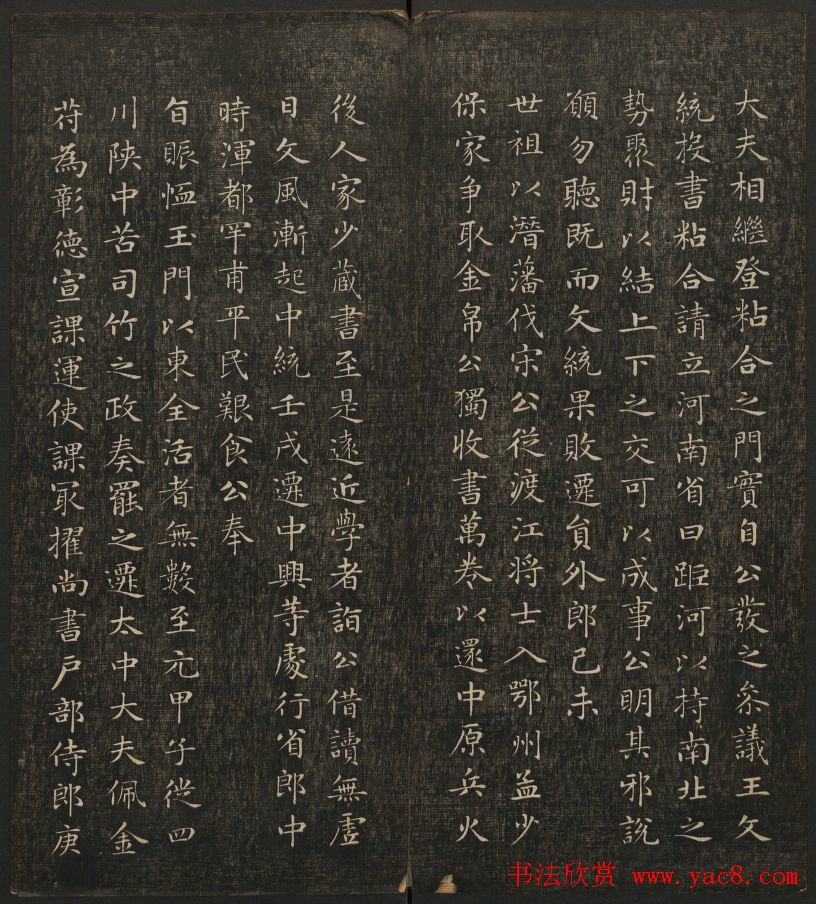 大夫相繼登粘合之門實自公發之叅議王文
統投書粘合請立河南省曰距河以持南北之
勢聚財以結上下之交可以成事公明其邪說
願勿聽既而文統果敗遷貟外郎己未
世祖以潛藩伐宋公從渡江将士入鄂州孟少
保家争取金帛公獨收書萬卷以還中原兵火
後人家少藏書至是遠近學者詣公借讀無虛
日文風漸起中統壬戌遷中興等處行省郎中
時渾都罕甫平民艱食公奉
旨賑恤玉門以東全活者無數至元甲子從四
川陕中苦司竹之政奏罷之遷太中大夫佩金
符為彰德宣課運使課冣擢尚書戶部侍郎庚
书法欣赏 www.yac8.com